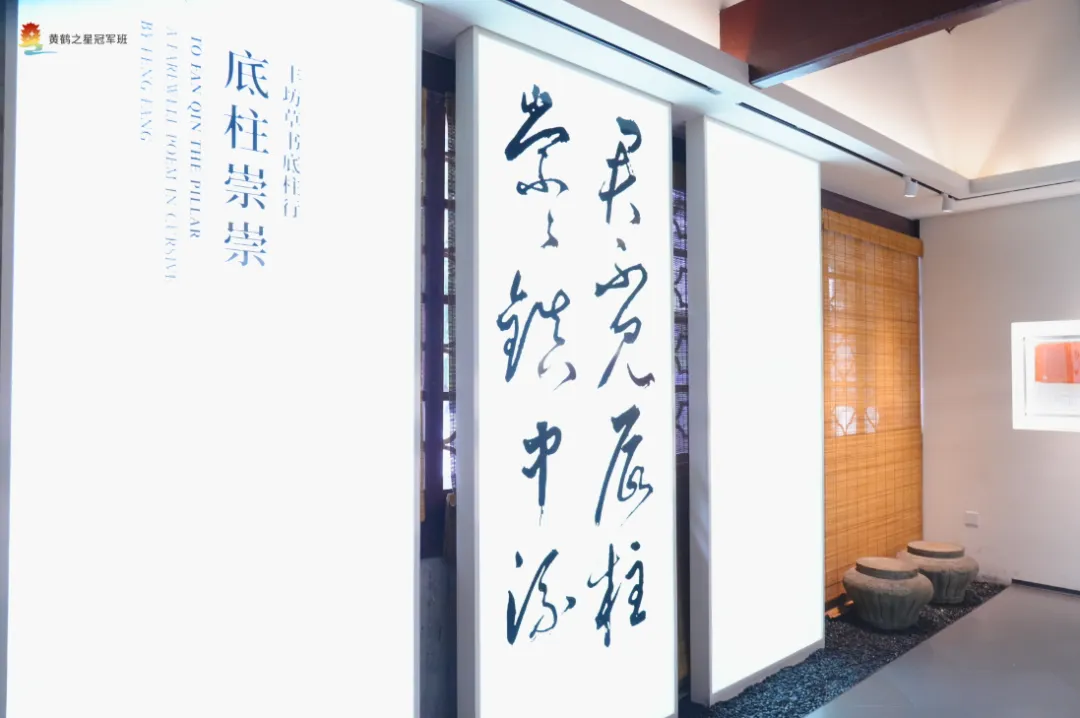 黄鹤之星冠军班
丰坊草书底柱行
底柱崇崇
TO FAN QIN THE PILLAR
A FAREWELL POEM IN CURSIVE
BY FENG FANG
君不見底柱
崇々鎮中流